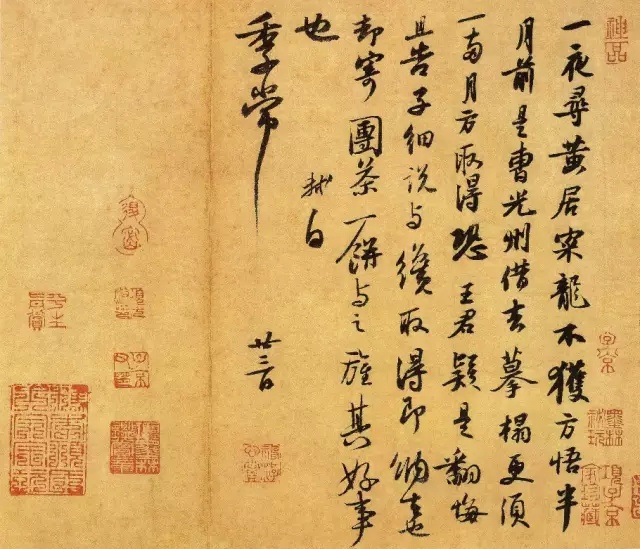 一夜尋黃居寀龍不獲方悟半
月前是曹光州借去摹搨更須
一兩月方取得恐王君疑是翻悔
且告子細說與纔取得即納去也
却寄團茶一餅與之旌其好事
也
軾白
季常
廿三日
神品
子京